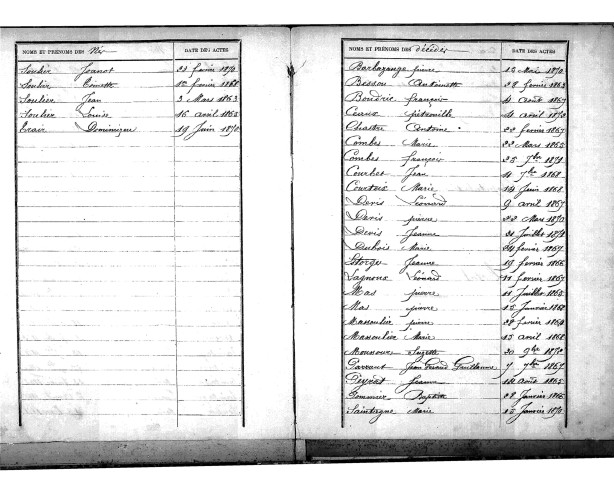 NOMS ET PRÉNOMS DES Nés DATE DES ACTES
Soulier Jeanot 21 février 1870
Soulier Toinette 1er février 1868
Soulier Jean 3 Mars 1863
Soulier Louise 16 avril 1865
Dominique 19 Juin 1870
NOMS ET PRÉNOMS DES décédés DATE DES ACTES
Barbazange pierre 12 Mai 1870
Bessou Antoinette 28 février 1863
Boudrie françois 4 Août 1867
Ceaux pétronille 4 avril 1870
Chastre Antoine 22 février 1867
Combes Marie 22 Mars 1865
Combes françois 25 7bre 1871
Courbet Jean 4 7bre 1868
Courteix Marie 14 Juin 1868
Denis Léonard 9 avril 1867
Denis pierre 22 Mars 1870
Denis Jeanne 31 Juillet 1870
Dubois Marie 24 février 1867
Jeanne 19 février 1866
Léonard 11 février 1867
Mas pierre 11 Juillet 1865
Mas pierre 15 Janvier 1868
Massoulier pierre 28 février 1864
Massoulier Marie 15 avril 1868
Suzette 30 9bre 1870
Jean Guillaume 7 7bre 1867
Jeanne Août 1865
Pommier Baptiste 28 Janvier 1866
Marie 15 Janvier 1870